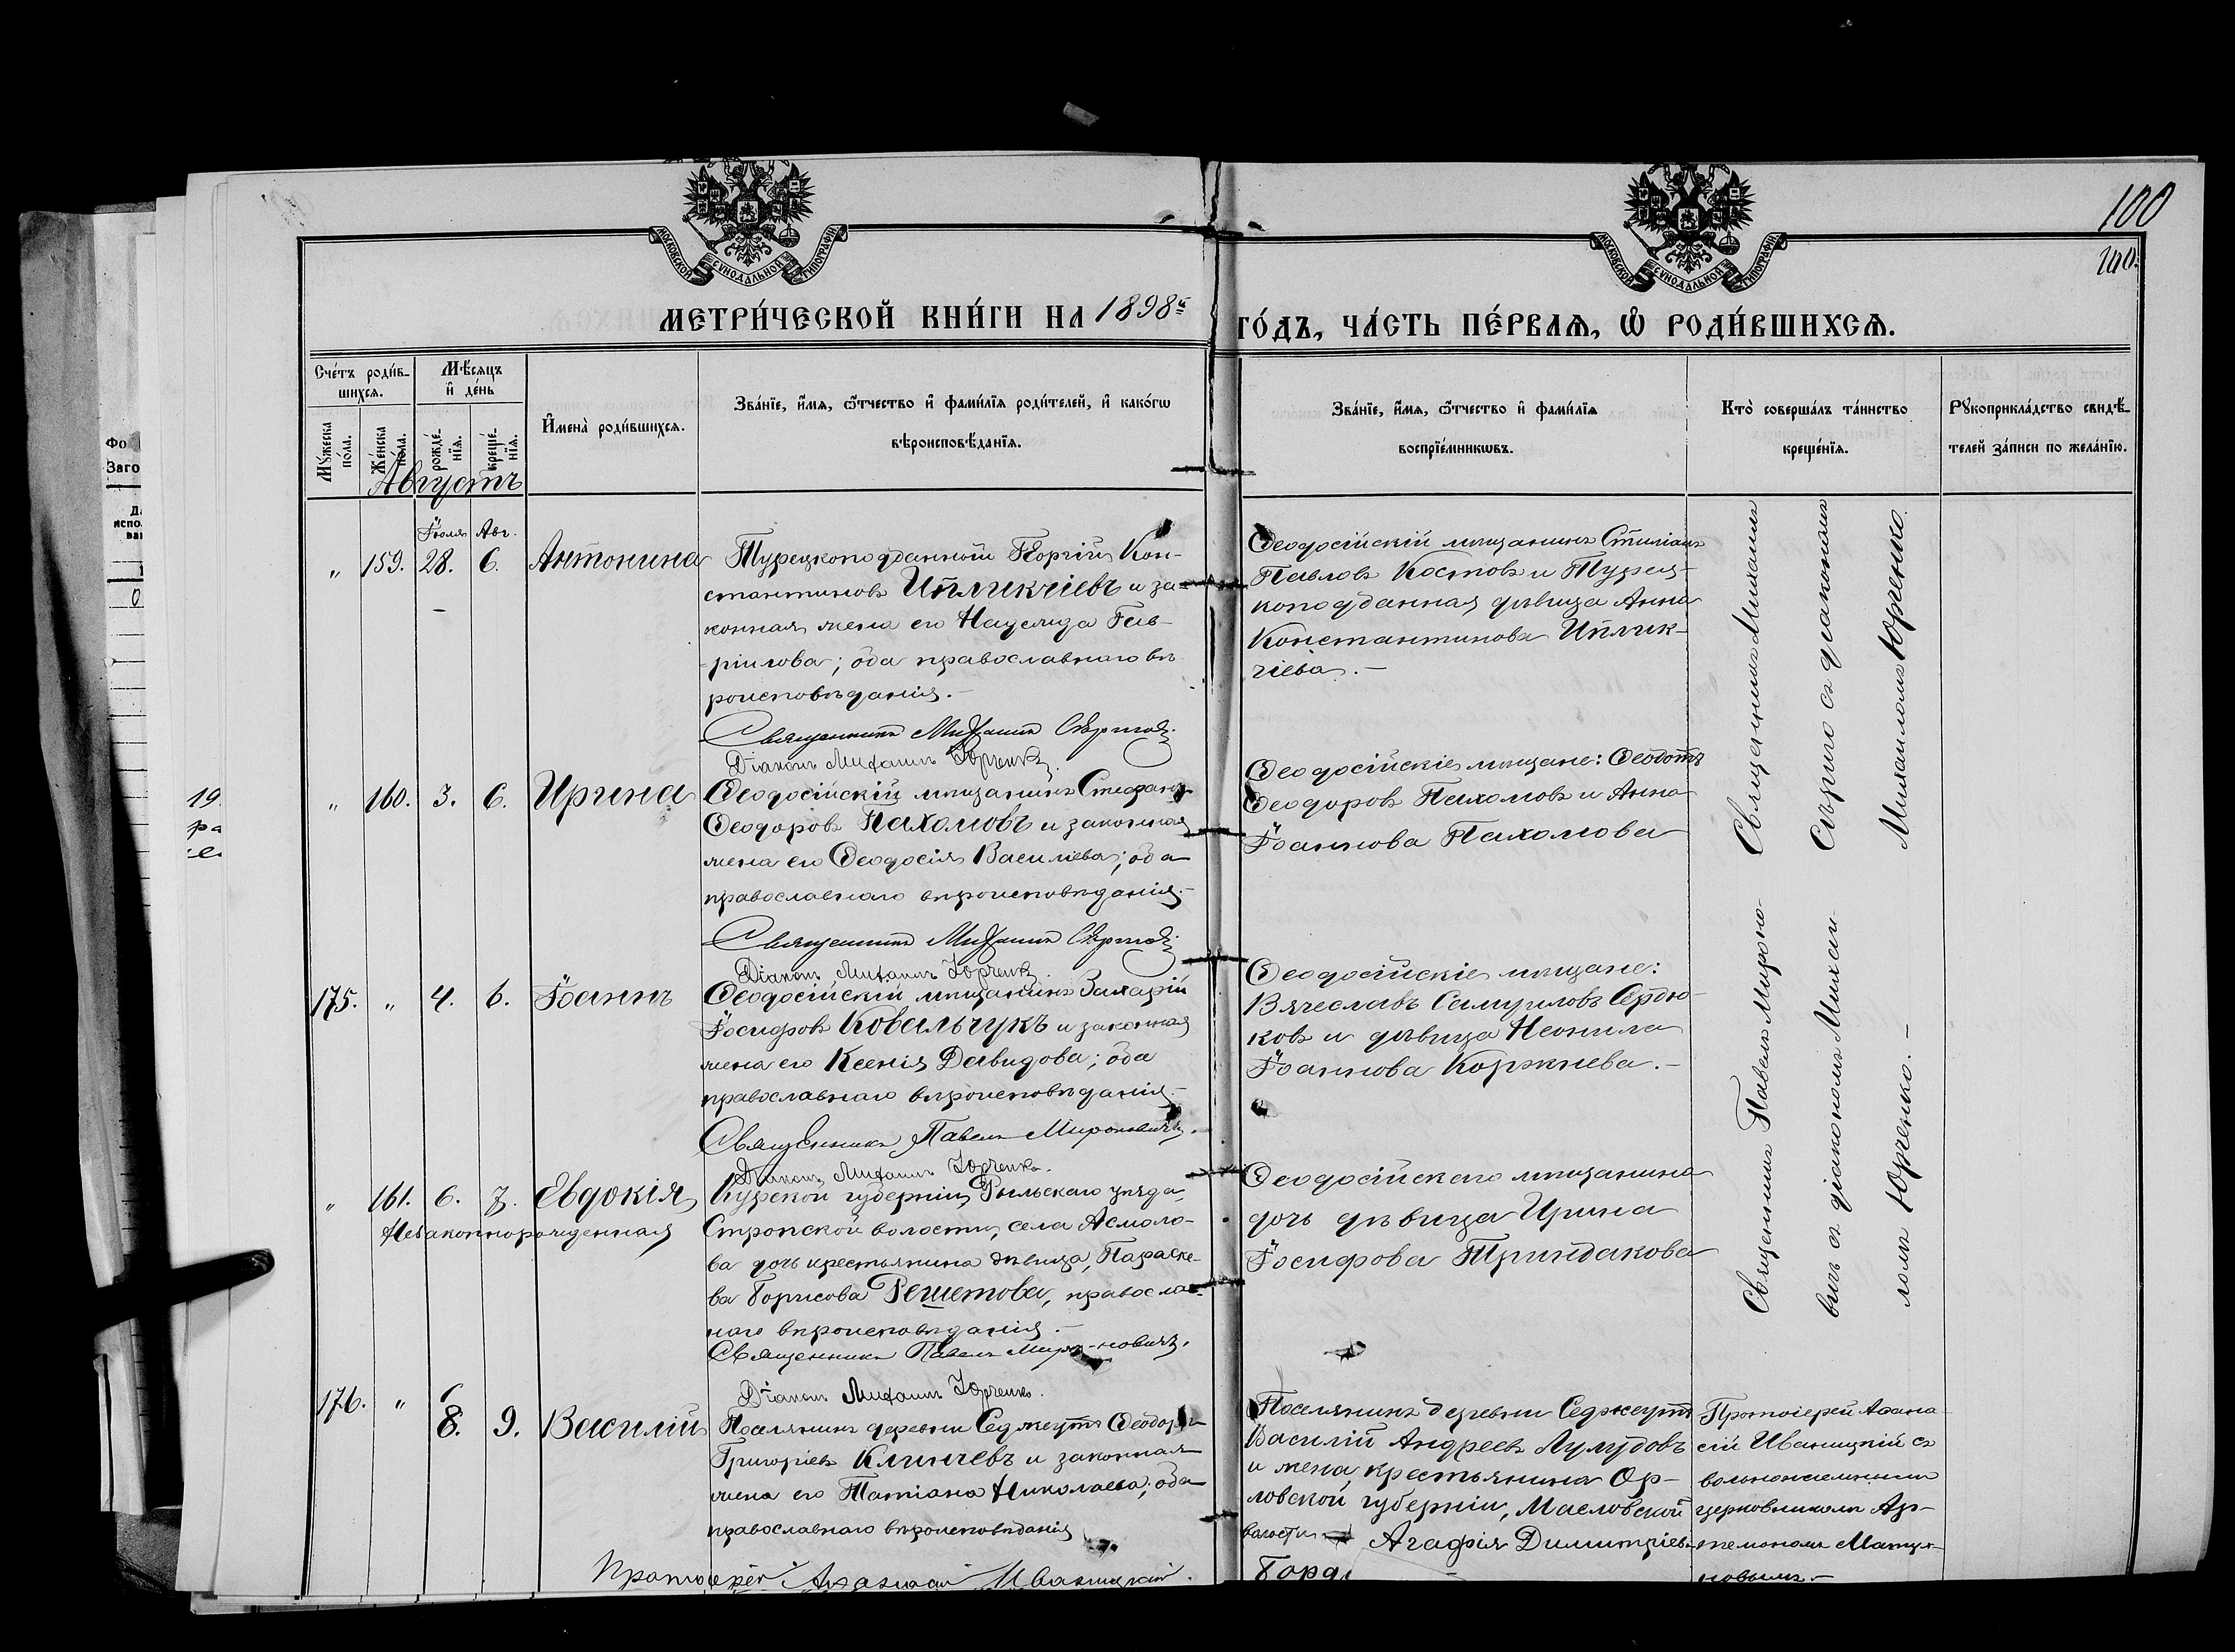 100
100.
МОСКОВСКОЙ СѴНОДАЛЬНОЙ ТИПОГРАФІИ
МОСКОВСКОЙ СѴНОДАЛЬНОЙ ТИПОГРАФІИ
МЕТРИ́ЧЕСКОЙ КНИ́ГИ НА 1898й
ГО́ДЪ, ЧА́СТЬ ПЕ́РВАѦ, Ѽ РОДИ́ВШИХСѦ.
Сче́тъ роди́в-
шихсѧ.
Мѣ́сѧцъ
и҆ де́нь
Мꙋ́жеска по́ла.
Же́нска по́ла.
рожде́-нїѧ.
креще́-нїѧ.
И҆мена̀ роди́вшихсѧ.
Зва́нїе, и҆́мѧ, ѻ҆́тчество и҆ фами́лїѧ роди́телей, и҆ како́гѡ
вѣроисповѣ́данїѧ.
Зва́нїе, и҆́мѧ, ѻ҆́тчество и҆ фами́лїѧ
воспрїе́мникѡвъ.
Кто̀ соверша́лъ та́инство
креще́нїѧ.
Рꙋкоприкла́дство свидѣ́-
телей за́писи по жела́нїю.
Августъ
Іюля Авг.
" 159. 28. 6. Антонина
Турецкоподданный Георгій Кон-
стантиновъ Ипликчіевъ и за-
конная жена его Гав-
ріилова; оба православнаго вѣ
роисповѣданія.-
Священникъ Михаилъ Сѣрго
Діаконъ Михаилъ Юрченко.
Ѳеодосійскій мѣщанинъ Стиліанъ
Павловъ Костовъ и Турец-
коподданная дѣвица Анна
Константинова Ипликь-
чіева.-
Священникъ Михаилъ
Сѣрго съ діакономъ
Михаиломъ Юрченко
" 160. 3. 6. Ирина
Ѳеодосійскій мѣщанинъ Стефанъ
Ѳеодоровъ Пахомовъ и законная
жена его Ѳеодосія Васильева; оба
православнаго вѣроисповѣданія.-
Священникъ Михаилъ Сѣрго
Діаконъ Михаилъ Юрченко.
Ѳеодосійскіе мѣщане: Ѳеодотъ
Ѳеодоровъ Пахомовъ и Анна
Іоаннова Пахомова
175. " 4. 6. Іоаннъ
Ѳеодосійскій мѣщанинъ Захарій
Іосифовъ Ковальчукъ и законная
жена его Ксенія Давидова; оба
православнаго вѣроисповѣданія.-
Священникъ Павелъ Мироновичъ.
Діаконъ Михаилъ Юрченко.
Ѳеодосійскіе мѣщане:
Вячеславъ Самуиловъ Сердю-
ковъ и дѣвица Неонила
Іоаннова Коржнева.-
Священникъ Павелъ Мироно-
вичъ съ діакономъ Михаи-
ломъ Юрченко.-
" 161. 6. 7. Евдокія
Незаконнорожденная
Курской губерніи, Рыльскаго уѣзда,
Стропской волости, села Асмоло-
ва дочь крестьянина дѣвица, Параске-
ва Борисова Решетова, православ-
наго вѣроисповѣданія.-
Священникъ Павелъ Миро-новичъ.
Діаконъ Михаилъ Юрченко.
Ѳеодосійскаго мѣщанина
дочь дѣвица Ирина
Іосифова Триндакова
176. " 8. 9. Василій
Поселянинъ деревни Седжеутъ Ѳеодоръ
Григоріевъ Клинчевъ и законная
жена его Татіана Николаева; оба
православнаго вѣроисповѣданія
Протоіерей Аѳанасій Иваницкій.
Поселянинъ деревни Седжеутъ
Василій Андреевъ Лулудовъ
и жена крестьянина Ор-
ловской губерніи, Масловской
волости Агафія Димитріева
Борд
Протоіерей Аѳана-
сій Иваницкій съ
вольнонаемнымъ
церковникомъ Ар-
темономъ Матуш-
новымъ.-